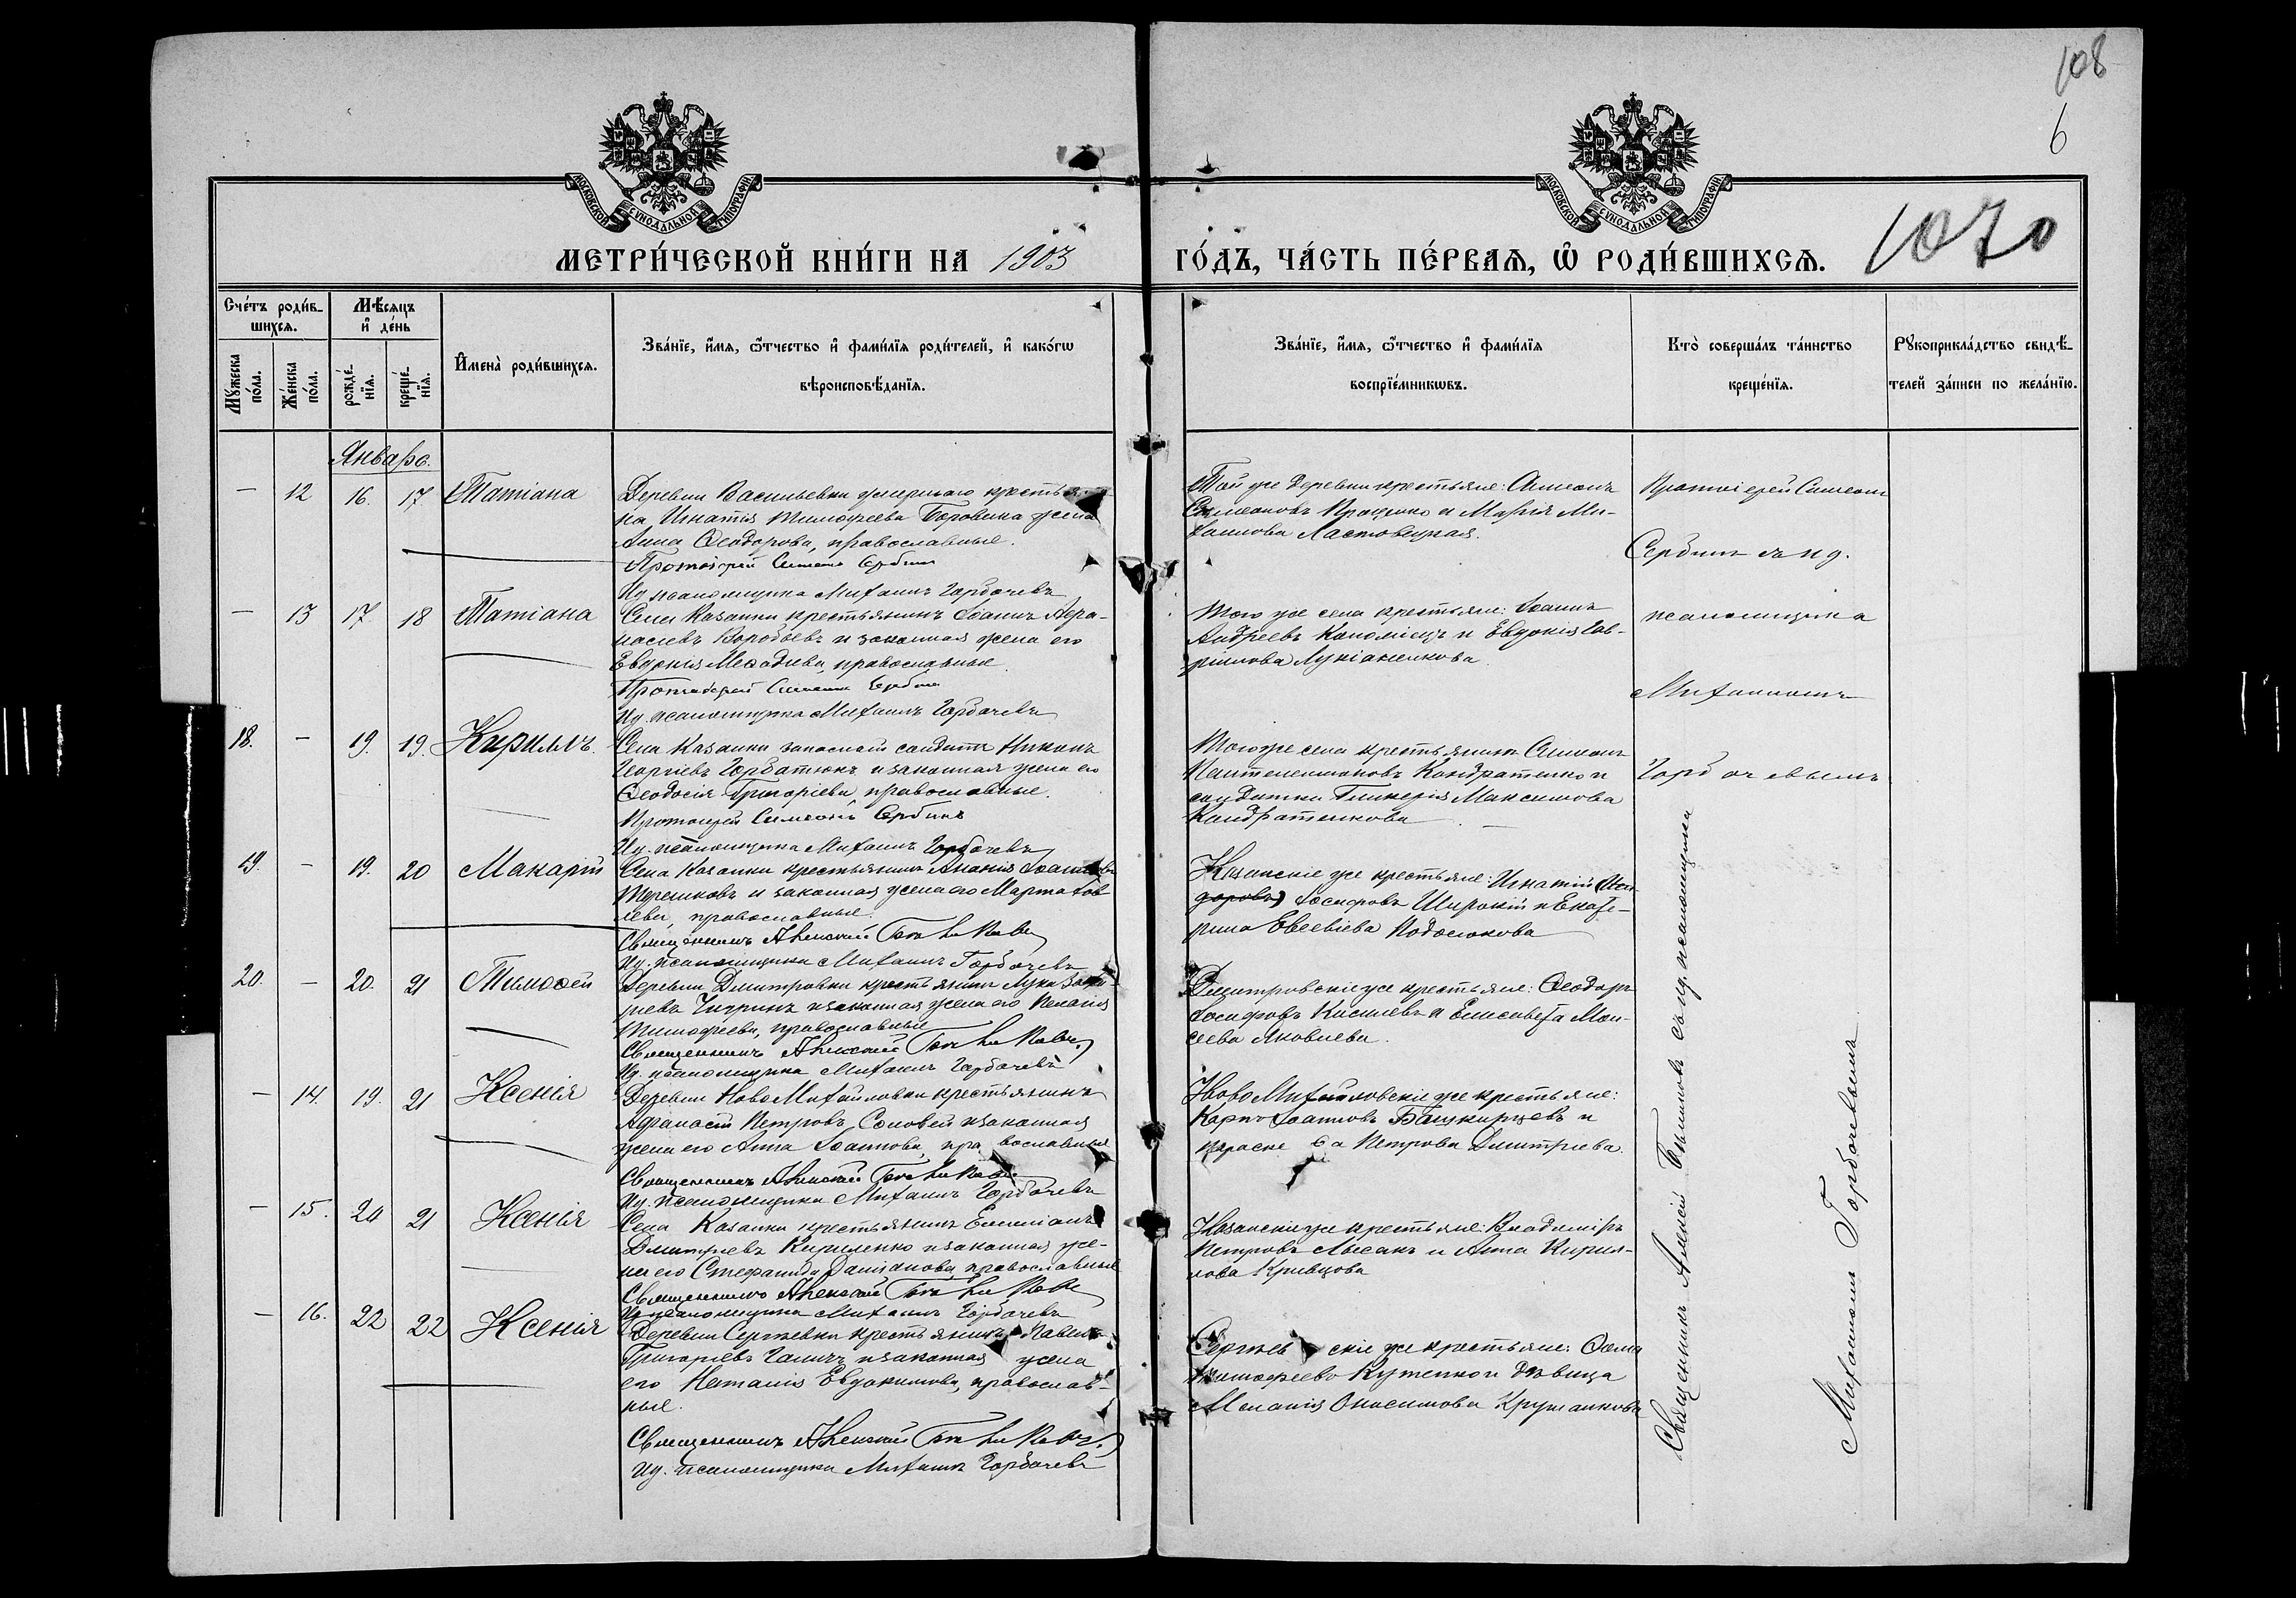 108
6
1070
МОСКОВСКОЙ СУНОДАЛЬНОЙ ТИПОГРАФІИ
МОСКОВСКОЙ СУНОДАЛЬНОЙ ТИПОГРАФІИ
МЕТРИ́ЧЕСКОЙ КНИ́ГИ НА 1903 ГО́ДЪ, ЧА́СТЬ ПЕ́РВАѦ, Ѡ РОДИ́ВШИХСѦ.
Сче́тъ роди́в-
шихсѧ.
Мꙋ́жеска по́ла.
Же́нска по́ла.
Мѣ́сѧцъ
и҆ де́нь
рожде́-нїѧ.
креще́-нїѧ.
И҆мена̀ роди́вшихсѧ.
Зва́нїе, и҆́мѧ, ѻ҆́тчество и҆ фами́лїѧ роди́телей, и҆ како́гѡ
вѣроисповѣ́данїѧ.
Зва́нїе, и҆́мѧ, ѻ҆́тчество и҆ фами́лїѧ
воспрїе́мникѡвъ.
Кто̀ соверша́лъ та́инство
креще́нїѧ.
Рꙋкоприкла́дство свидѣ́-
телей за́писи по жела́нїю.
Января.
— 12 16. 17. Татіана
Деревни Васильевки умершаго крестьяни-
на Игнатія Тимофеева Боровика жена
Анна Ѳеодорова, православные.
Протоіерей Симеонъ Сербинъ
Ид. псаломщика Михаилъ Горбачевъ
Той же деревни крестьяне: Симеонъ
Симеоновъ Проценко и Марія Ми-
хаилова Ластовецкая.
Протоіерей Симеонъ
Сербинъ съ и д.
— 13 17 18 Татіана
Села Казанки крестьянинъ Іоаннъ Афа-
насіевъ Воробьевъ и законная жена его
Евдокія Меѳодіева, православные.
Протоіерей Симеонъ Сербинъ
Ид. псаломщика Михаилъ Горбачевъ
Того же села крестьяне: Іоаннъ
Андреевъ Коломіецъ и Евдокія Гав-
рилова Лукіаненкова.
псаломщика
Михаиломъ
18. — 19. 19. Кириллъ.
Села Казанки запасной солдатъ Никонъ
Георгіевъ Горбатюкъ и законная жена его
Ѳеодосія Григоріева, православные.
Протоіерей Симеонъ Сербинъ
Ид. псаломщика Михаилъ Горбачевъ
Того же села крестьянинъ Симеонъ
Пантелеимоновъ Кондратенко и
солдатка Гликерія Максимова
Кондратенкова
Горбачевымъ
19. — 19. 20 Макарій
Села Казанки крестьянинъ Ананія Іоанновъ
Терешковъ и законная жена его Марта Іов
лева, православные.
Священникъ Алексій
Ид. псаломщика Михаилъ Горбачевъ
Казанскіе же крестьяне: Игнатій (Иси-
доровъ) Іосифовъ Широкій и Екате-
рина Евсевіева Подосюкова
20. — 20. 21 Тимоѳей
Деревни Дмитровки крестьянинъ Лука
Чигринъ и законная жена его Пелагія
Тимофеева, православные
Священникъ Алексій
Ид. псаломщика Михаилъ Горбачевъ
Дмитровскіе же крестьяне: Ѳеодоръ
Іосифовъ Киселевъ и Елисавета Мои-
сеева Яковлева.
— 14. 19. 21 Ксенія
Деревни НовоМихайловки крестьянинъ
Афанасій Петровъ Соловей и законная
жена его Анна Іоаннова, православные
Священникъ Алексій
Ид. псаломщика Михаилъ Горбачевъ
НовоМихайловскіе же крестьяне:
Карпъ Іоанновъ Башкирцевъ и
Параскева Петрова Дмитріева.
— 15. 20 21 Ксенія
Села Казанки крестьянинъ Емеліанъ
Дмитріевъ Кириленко и законная же-
на его Стефанида Даміанова, православные
Священникъ Алексій
Ид. псаломщика Михаилъ Горбачевъ
Казанскіе же крестьяне: Владиміръ
Петровъ Лысакъ и Анна Кирил-
лова Кривцова
— 16. 22 22 Ксенія
Деревни Сергѣевки крестьянинъ Павелъ
Григорьевъ Галичъ и законная жена
его Наталія Евдокимова, православ-
ные.
Священникъ Алексій
Ид. псаломщика Михаилъ Горбачевъ
Сергѣевскіе же крестьяне: Ѳома
Тимофеевъ Кутепков дѣвица
Меланія Онисимова Кружанкова
Священникъ Алексій съ ид. псаломщика
Михаиломъ Горбачевымъ